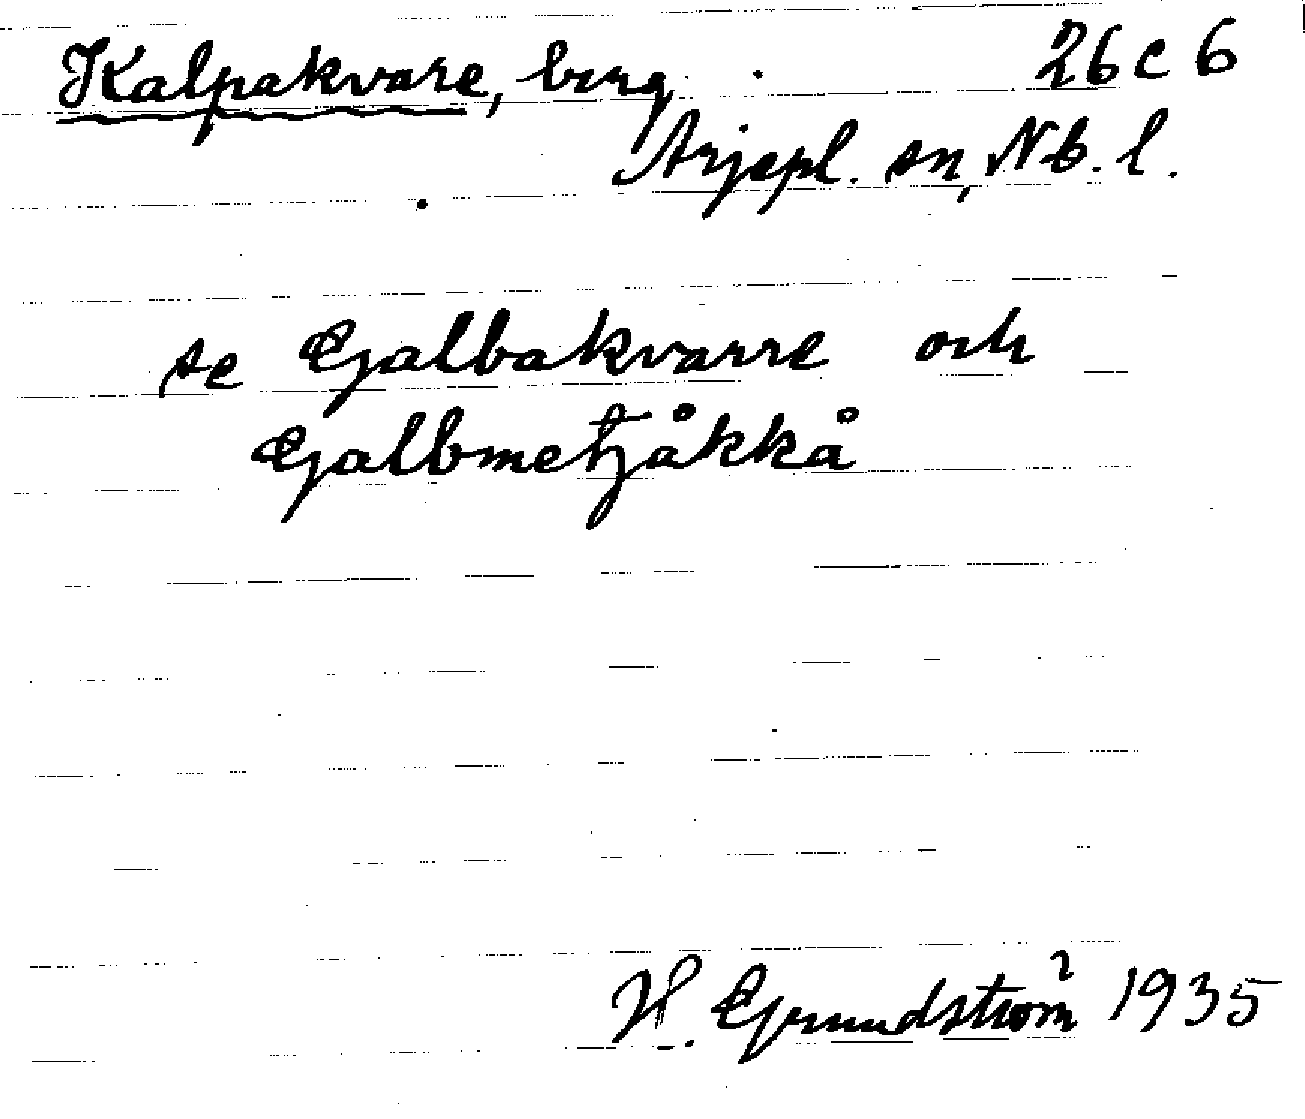 Kalpakvare, berg 26 C 6
Arjepl. sn, Nb. l.
se Galbakvarre och
Galbmetjåkkå
H. Grundström 1935